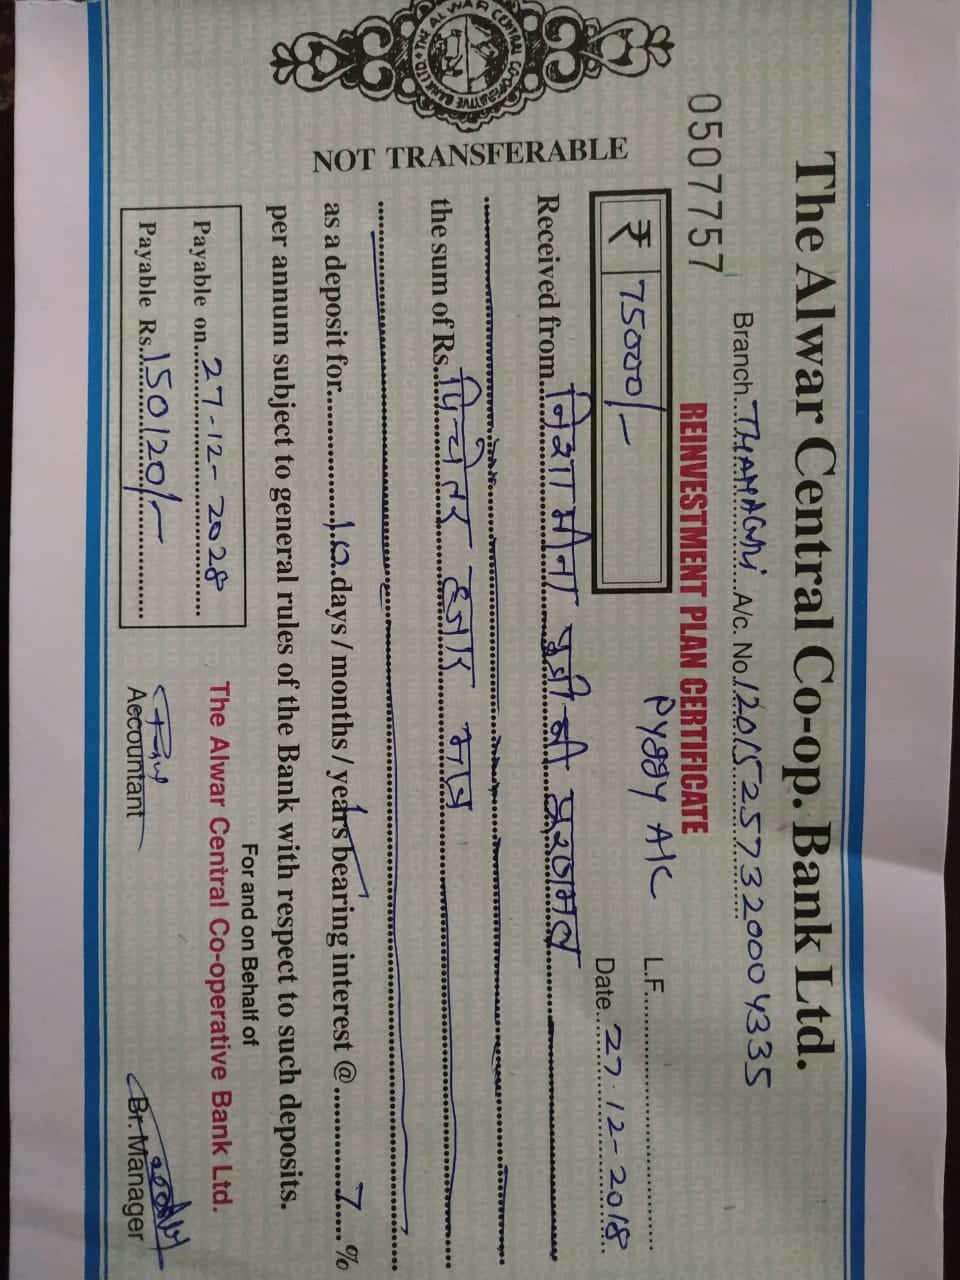 The Alwar Central Co-op. Bank Ltd.
Branch...THANAGAZI...A/c. No.12015257320004335
0507757
REINVESTMENT PLAN CERTIFICATE
Pyggy A/C
L.F.
₹ 75000/-
Date...27.12-2018
THE ALWAR CENTRAL CO-OPERATIVE BANK LTD.
NOT TRANSFERABLE
Received from...निशा मीना पुत्री श्री पूरणमल
the sum of Rs...पिचेतर हजार मात्र
as a deposit for...10.days / months / years bearing interest @...7...%
per annum subject to general rules of the Bank with respect to such deposits.
Payable on...27-12-2028
Payable Rs...150120/-
For and on Behalf of
The Alwar Central Co-operative Bank Ltd.
Accountant
Br. Manager